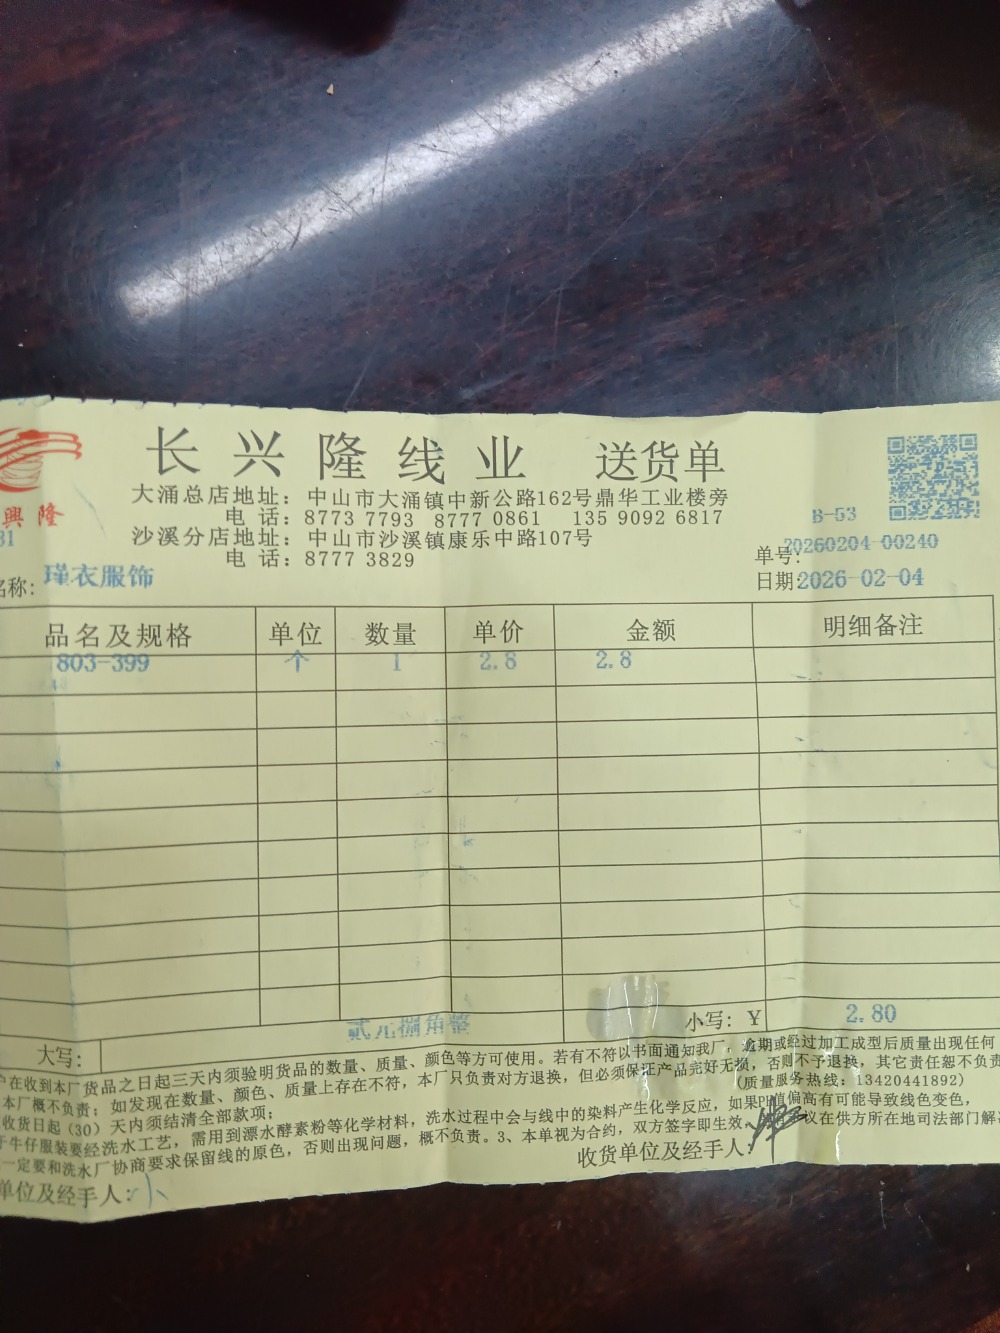 长兴隆线业 送货单
大涌总店地址：中山市大涌镇中新公路162号鼎华工业楼旁
电 话：8773 7793 8777 0861 135 9092 6817
沙溪分店地址：中山市沙溪镇康乐中路107号
电 话：8777 3829
興隆
B-53
31
单号：20260204-00240
名称：瑾衣服饰
日期：2026-02-04
品名及规格 单位 数量 单价 金额 明细备注
803-399 个 1 2.8 2.8
大写：贰元捌角整 小写：¥ 2.80
户在收到本厂货品之日起三天内须验明货品的数量、质量、颜色等方可使用。若有不符以书面通知我厂，逾期或经过加工成型后质量出现任何
本厂概不负责；如发现在数量、颜色、质量上存在不符，本厂只负责对方退换，但必须保证产品完好无损，否则不予退换，其它责任恕不负责
收货日起（30）天内须结清全部款项； （质量服务热线：13420441892）
于牛仔服装要经洗水工艺，需用到漂水酵素粉等化学材料，洗水过程中会与线中的染料产生化学反应，如果PH值偏高有可能导致线色变色，
一定要和洗水厂协商要求保留线的原色，否则出现问题，概不负责。3、本单视为合约，双方签字即生效，议在供方所在地司法部门解
单位及经手人： 收货单位及经手人：